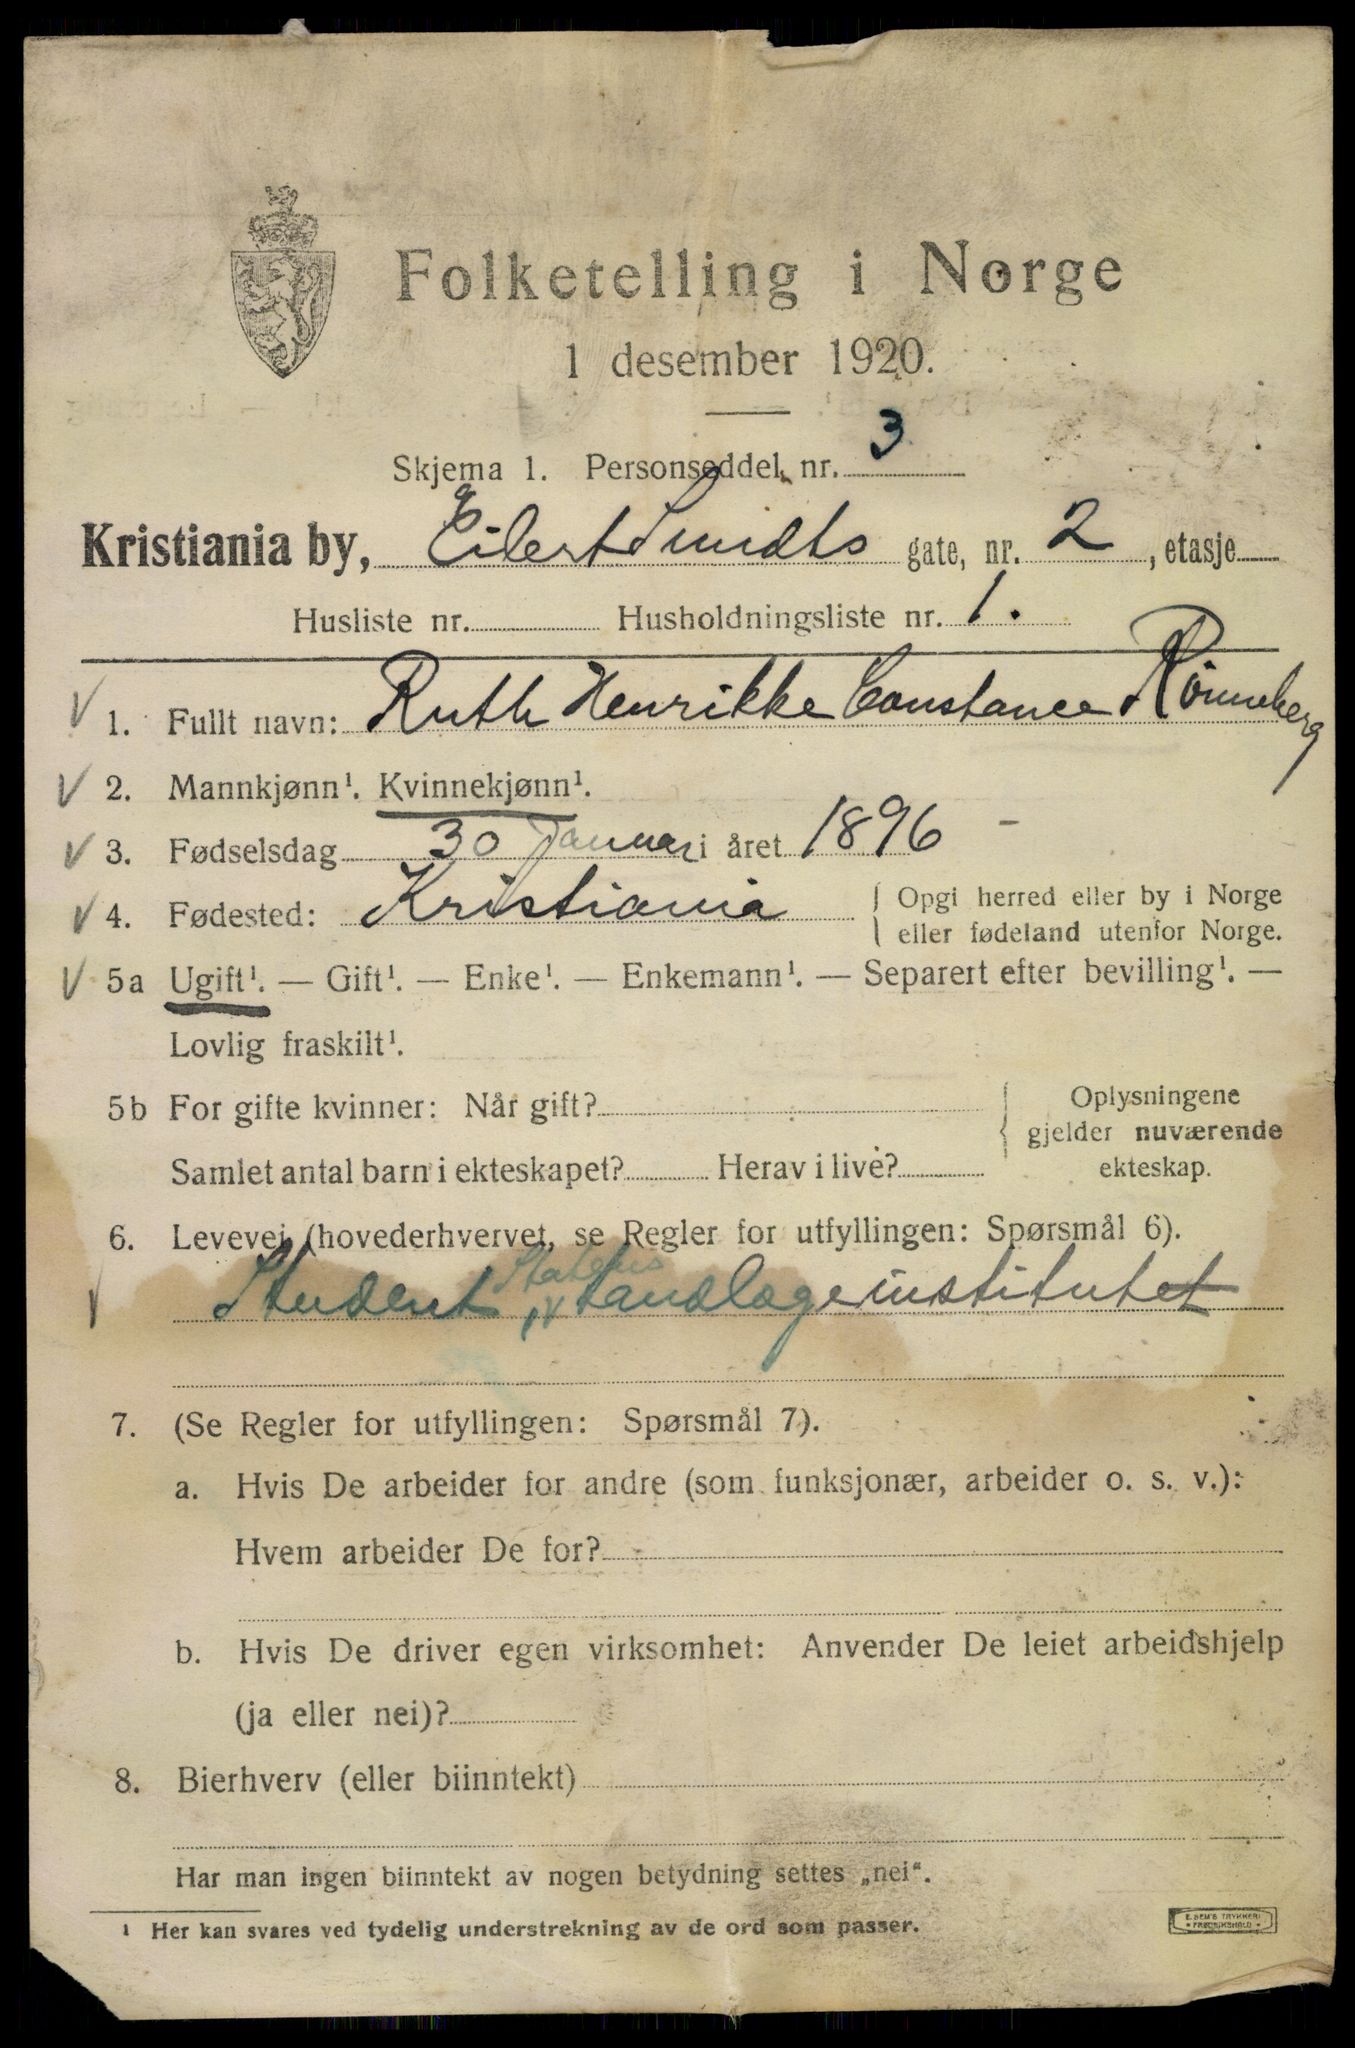 Folketelling i Norge
1 desember 1920.
Skjema 1. Personseddel nr. 3
Kristiania by, Eilert Sundts gate, nr. 2, etasje
Husliste nr. Husholdningsliste nr. 1.
1. Fullt navn: Ruth Henrikke Constance Rönneberg
2. Mannkjønn¹. Kvinnekjønn¹.
3. Fødselsdag 30 Januar i året 1896 –
4. Fødested: Kristiania { Opgi herred eller by i Norge
eller fødeland utenfor Norge.
5a Ugift¹. — Gift¹. — Enke¹. — Enkemann¹. — Separert efter bevilling¹. —
Lovlig fraskilt¹.
5b For gifte kvinner: Når gift? { Oplysningene
gjelder nuværende
Samlet antal barn i ekteskapet? Herav i live? ekteskap.
6. Levevei (hovederhvervet, se Regler for utfyllingen: Spørsmål 6).
Student, Statens tandlægeinstitutet
7. (Se Regler for utfyllingen: Spørsmål 7).
a. Hvis De arbeider for andre (som funksjonær, arbeider o. s. v.):
Hvem arbeider De for?
b. Hvis De driver egen virksomhet: Anvender De leiet arbeidshjelp
(ja eller nei)?
8. Bierhverv (eller biinntekt)
Har man ingen biinntekt av nogen betydning settes „nei“.
¹ Her kan svares ved tydelig understrekning av de ord som passer.
E. SEM'S TRYKKERI
• FREDRIKSHALD •